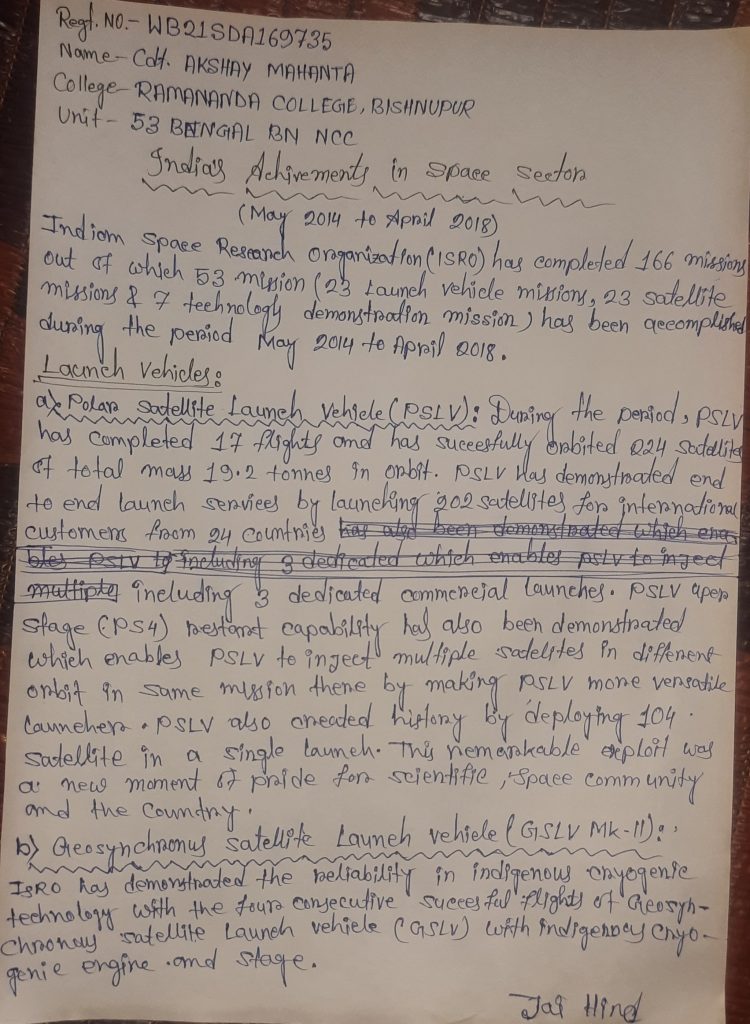 Regt. NO.- WB21SDA169735
Name- Cdt. AKSHAY MAHANTA
College- RAMANANDA COLLEGE, BISHNUPUR
Unit- 53 BENGAL BN NCC
India's Achivements in space sector
(May 2014 to April 2018)
Indian space Research Organization (ISRO) has completed 166 missions
out of which 53 mission (23 Launch vehicle missions, 23 satellite
missions & 7 technology demonstration mission) has been accomplished
during the period May 2014 to April 2018.
Launch Vehicles:
a) Polar Satellite Launch Vehicle (PSLV): During the period, PSLV
has completed 17 flights and has succesfully orbited 224 satellite
of total mass 19.2 tonnes in orbit. PSLV has demonstrated end
to end launch services by launching 202 satellites for international
customers from 24 countries has also been demonstrated which ena-
bles PSLV to including 3 dedicated which enables PSLV to inject
multiple including 3 dedicated commercial launches. PSLV uper
stage (PS4) restart capability has also been demonstrated
which enables PSLV to inject multiple satelites in different
orbit in same mission there by making PSLV more versatile
launcher. PSLV also created history by deploying 104
satellite in a single launch. This remarkable exploit was
a new moment of pride for scientific, space community
and the Country.
b) Geosynchronus satellite Launch vehicle (GSLV Mk-II):
ISRO has demonstrated the reliability in indigenous cryogenic
technology with the four consecutive succesful flights of Geosyn-
chronous satellite Launch vehicle (GSLV) with indigenous cryo-
genic engine and stage.
Jai Hind